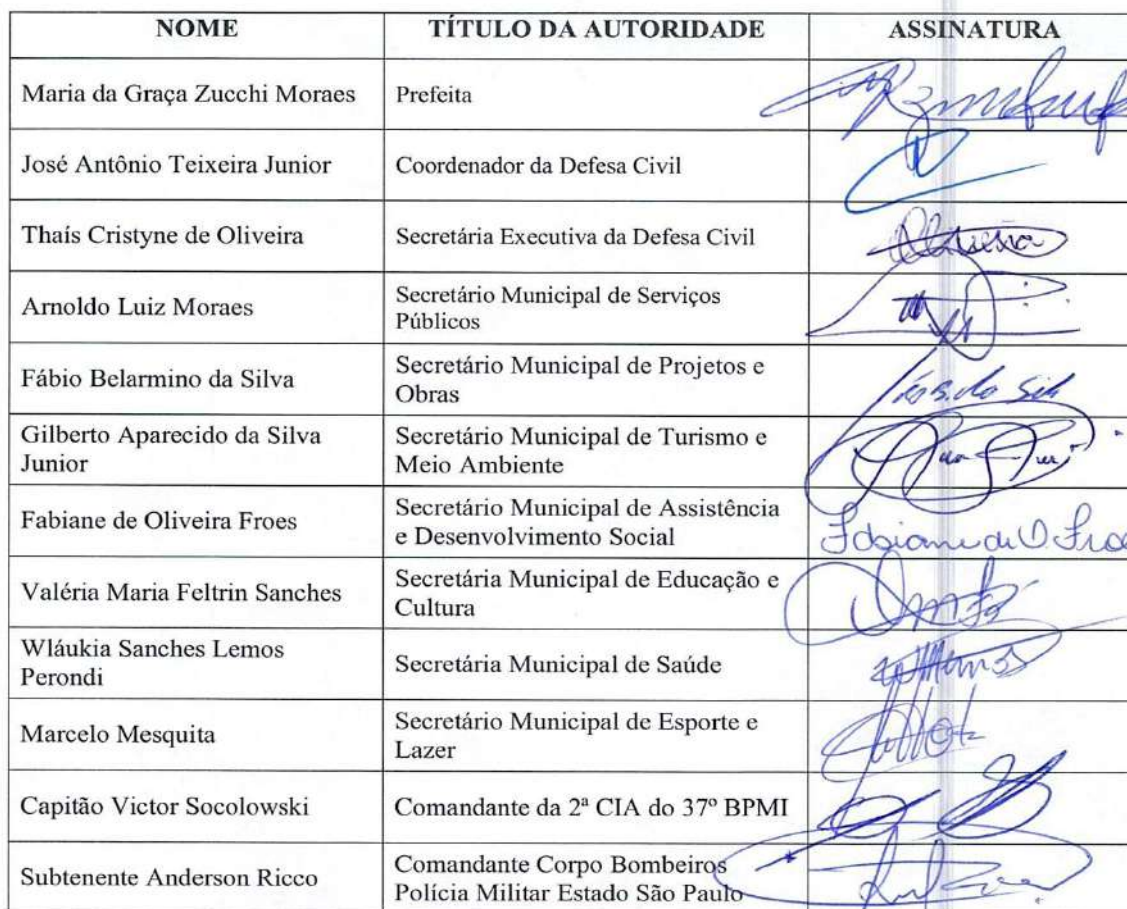 NOME TÍTULO DA AUTORIDADE ASSINATURA
Maria da Graça Zucchi Moraes Prefeita
José Antônio Teixeira Junior Coordenador da Defesa Civil
Thaís Cristyne de Oliveira Secretária Executiva da Defesa Civil
Arnoldo Luiz Moraes Secretário Municipal de Serviços
Públicos
Fábio Belarmino da Silva Secretário Municipal de Projetos e
Obras
Gilberto Aparecido da Silva
Junior
Secretário Municipal de Turismo e
Meio Ambiente
Fabiane de Oliveira Froes Secretário Municipal de Assistência
e Desenvolvimento Social
Fabiane de O. Froe
Valéria Maria Feltrin Sanches Secretária Municipal de Educação e
Cultura
Wláukia Sanches Lemos
Perondi
Secretária Municipal de Saúde
Marcelo Mesquita Secretário Municipal de Esporte e
Lazer
Capitão Victor Socolowski Comandante da 2ª CIA do 37º BPMI
Subtenente Anderson Ricco Comandante Corpo Bombeiros
Polícia Militar Estado São Paulo